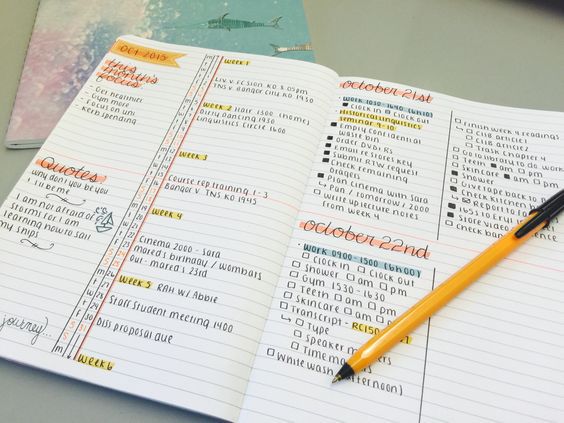 OCT 2015
this
month's
focus
- Get healthier
- Gym more
- Focus on uni
- Kerb spending
Quotes
why don't you be
you
& I'll be me
I am not afraid of
storms for I am
learning how to sail
my ships
journey...
week 1
Liv v FC Sion KO 8.05pm
TNS v. Bangor City KO 1930
week 2
Hair 1300 (home)
Dirty Dancing 1930
Linguistics Circle 1600
week 3
Course rep training 1-3
Bangor v TNS KO 1945
week 4
Cinema 2000 - Sara
mared's birthday / wombats
Out- mared's 23rd
week 5
RAH w/ Abbie
Staff student meeting 1400
Diss proposal due
week 6
october 21st
work 1030-1640 (6h10)
Clock in Clock out
Historical linguistics
Seminar 9-10
Empty confidential
waste bin
Order DVDRs
Email re stores key
Submit RTW request
Check remaining
drapes
Plan cinema with Sara
↳ Pan / Tomorrow / 2000
Write up lecture notes
from week 4
Finish week 4 readings
↳ CL18 article 1
CL18 article 2
Trask Chapter 4
Go to library to do work
Teeth am pm
Skincare am pm
Shower
Give tape back to
Check kitchen
↳ Report to
Store video
Check
october 22nd
- work 0900-1500 (6h00)
Clock in Clock out
Shower am pm
Gym 1530-1630
Teeth am pm
Skincare am pm
Transcript - RC150
↳ Type
Speaker
Time
White wash